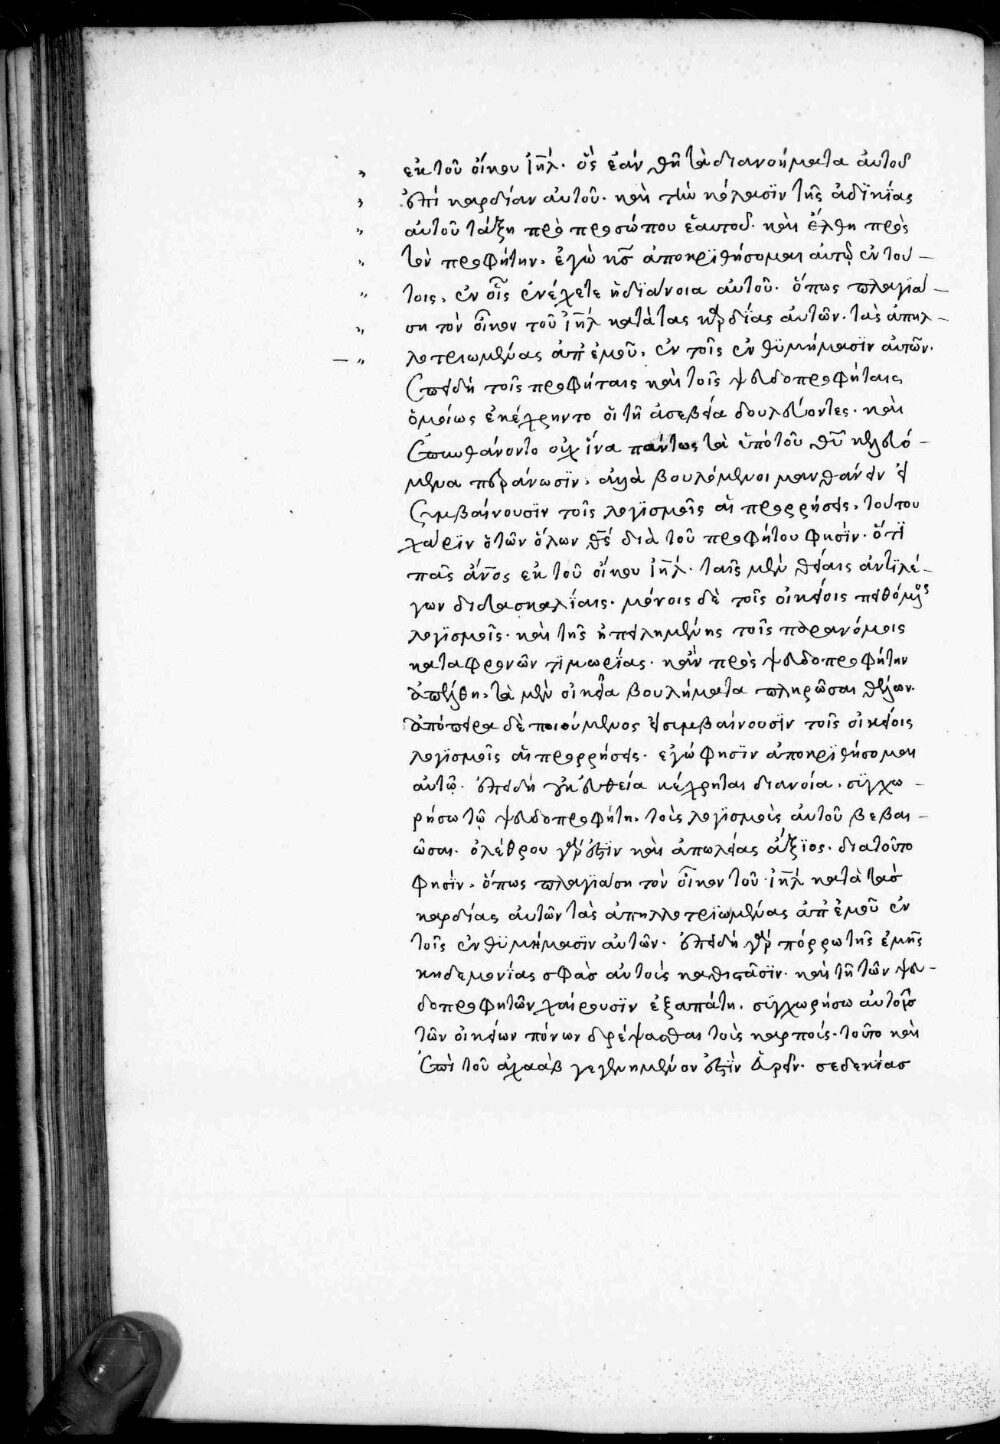 ἐκ τοῦ οἴκου ἰη̅λ· ὃς ἐὰν θῆ τὰ διανοήματα ἀυτοῦ
ἐπὶ καρδίαν ἀυτοῦ· καὶ τὴν κόλασϊν τῆς ἀδϊκίας
ἀυτοῦ τάξη πρὸ προσώπου ἑαυτοῦ· καὶ ἔλθη πρὸς
τὸν προφήτην· ἐγὼ κ̅ς ἀποκρϊθήσομαι ἀυτῶ ἐν τού –
τοις, ἐν οἷς ἐνέχετε ἡ διάνοια ἀυτοῦ· ὅπως πλαγιά –
ση τὸν οἶκον τοῦ ἰη̅λ κατὰ τὰς καρδίας ἀυτῶν· τὰς ἀπηλ –
λοτριωμένας ἀπ' ἐμοῦ, ἐν τοῖς ἐνθϋμήμασϊν ἀυτῶν.
ἐπειδὴ τοῖς προφήταις καὶ τοῖς ψευδοπροφήταις
ὁμοίως ἐκέχρηντο οἱ τῆ ἀσεβεία δουλεύοντες· καὶ
ἐπυνθάνοντο οὐχ ἵνα πάντως τὰ ὑπὸ τοῦ θ̅υ κελευό –
μενα περάνωσϊν· ἀλλὰ βουλόμενοι μανθάνειν εἰ
συμβαίνουσϊν τοῖς λογϊσμοῖς αἱ προρρήσεις, τούτου
χάρϊν ὁ τῶν ὅλων θ̅ς διὰ τοῦ προφήτου φησὶν· ὅτϊ
πᾶς ἄν̅ος ἐκ τοῦ οἴκου ἰη̅λ· ταῖς μὲν θείαις ἀντϊλέ –
γων διδασκαλΐαις· μόνοις δὲ τοῖς οἰκείοις πειθόμενος
λογϊσμοῖς· καὶ τῆς ἠπειλημένης τοῖς παρανόμοις
καταφρονῶν τϊμωρίας· κἂν πρὸς ψευδοπροφήτην
ἀπέλθη· τὰ μὲν οἰκεῖα βουλήματα πληρῶσαι θέλων·
ἀπόπειρα δὲ ποιούμενος εἰ συμβαίνουσϊν τοῖς οἰκείοις
λογϊσμοῖς αἱ προρρήσεις· ἐγώ φησϊν ἀποκρϊθήσομαι
ἀυτῶ· ἐπειδὴ γὰρ εὐηθεία κέχρηται διανοία, συγχω –
ρήσω τῶ ψευδοπροφήτη, τοὺς λογϊσμοὺς ἀυτοῦ βεβαι –
ῶσαι· ὀλέθρου γάρ ἐστϊν καὶ ἀπωλείας ἄξϊος· διατοῦτο
φησϊν· ὅπως πλαγιάση τὸν οἶκον τοῦ ἰη̅λ κατὰ τὰς
καρδίας ἀυτῶν τὰς ἀπηλλοτρϊωμένας ἀπ' ἐμοῦ ἐν
τοῖς ἐνθϋμήμασϊν ἀυτῶν· ἐπειδὴ γὰρ πόρρω τῆς ἐμῆς
κηδεμονΐας σφᾶς ἀυτοὺς καθιστᾶσϊν· καὶ τῆ τῶν ψευ –
δοπροφητῶν χαίρουσϊν ἐξαπάτη, συγχωρήσω ἀυτοῖς
τῶν οἰκείων πόνων δρέψασθαι τοὺς καρπούς· τοῦτο καὶ
ἐπὶ τοῦ ἀχαὰβ γεγενημένον ἐστϊν εὑρεῖν· σεδεκίας